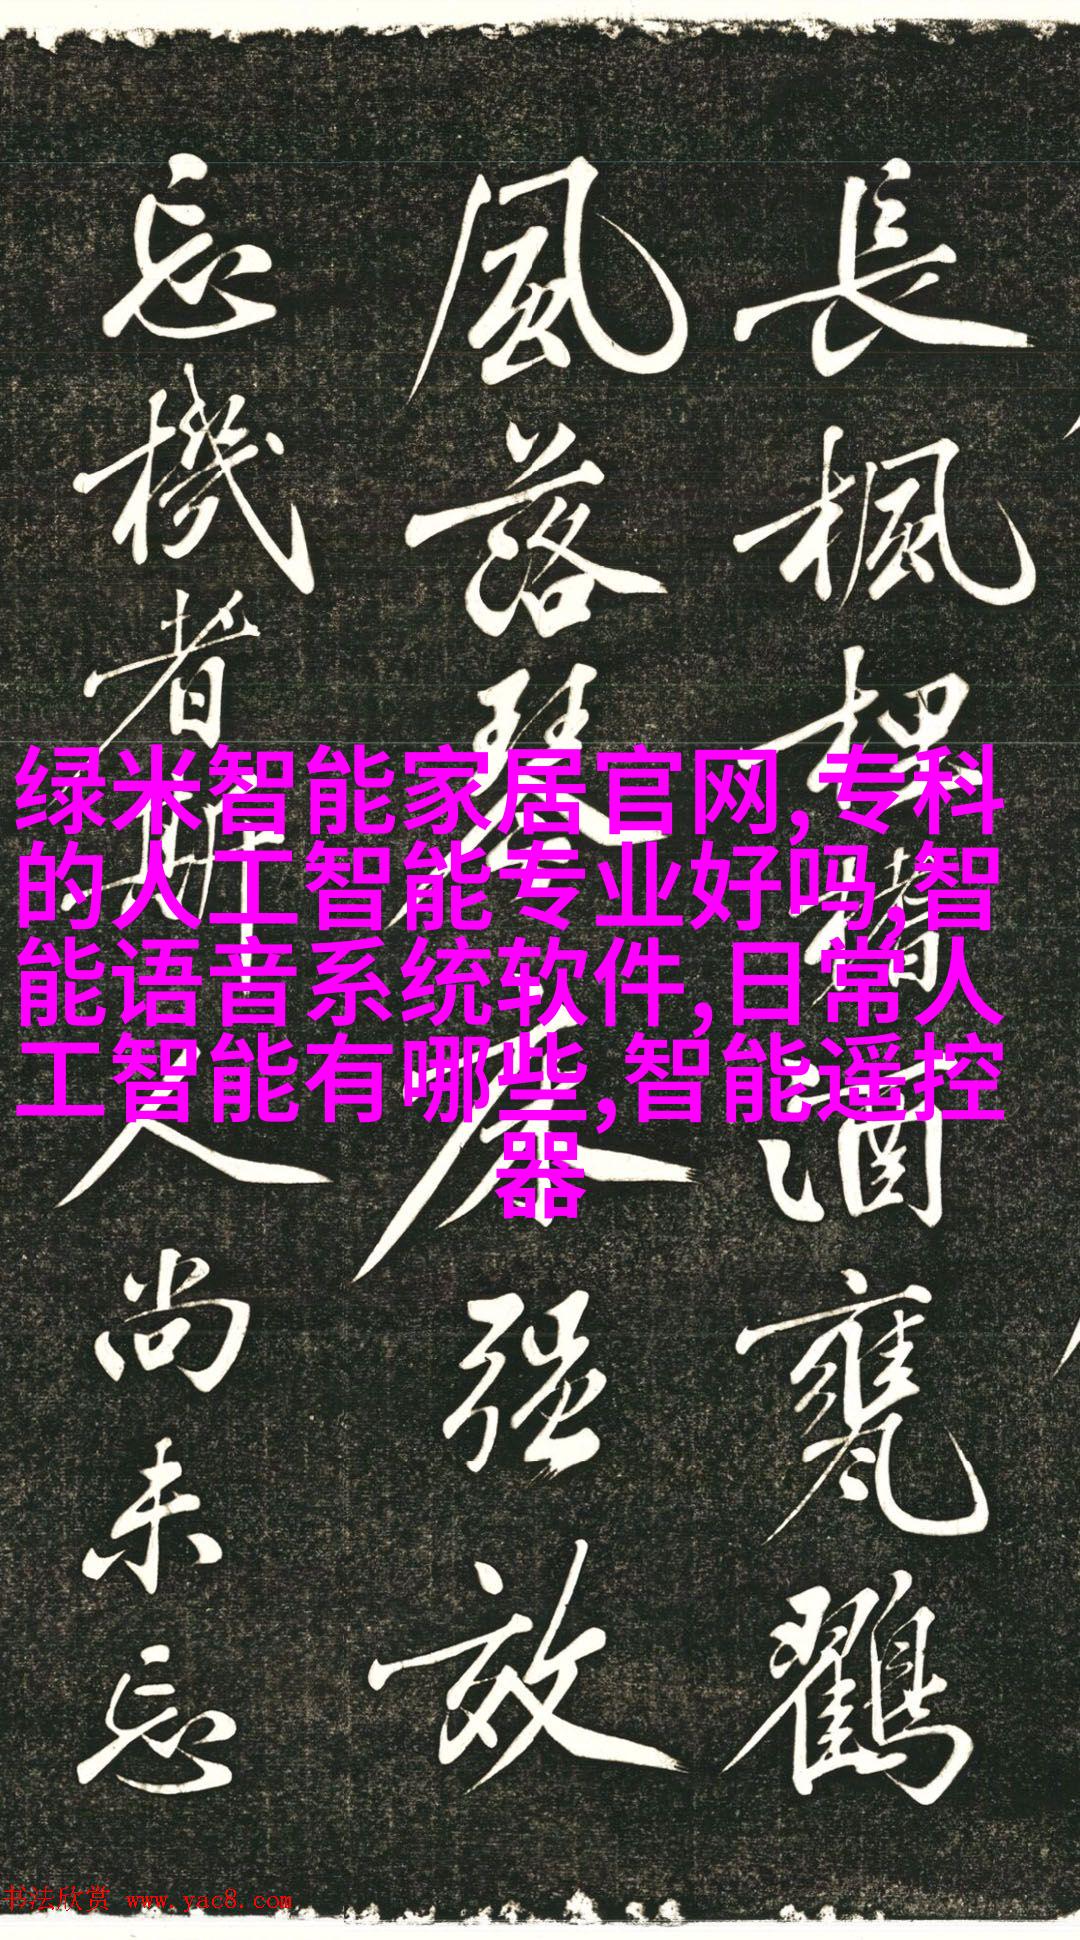 長楓起糟酒甕鸛
風落琴席强效
忘機者斯人尚未忘
绿米智能家居官网,专科
的人工智能专业好吗,智
能语音系统软件,日常人
工智能有哪些,智能遥控
器
书法欣赏 www.yac8.com